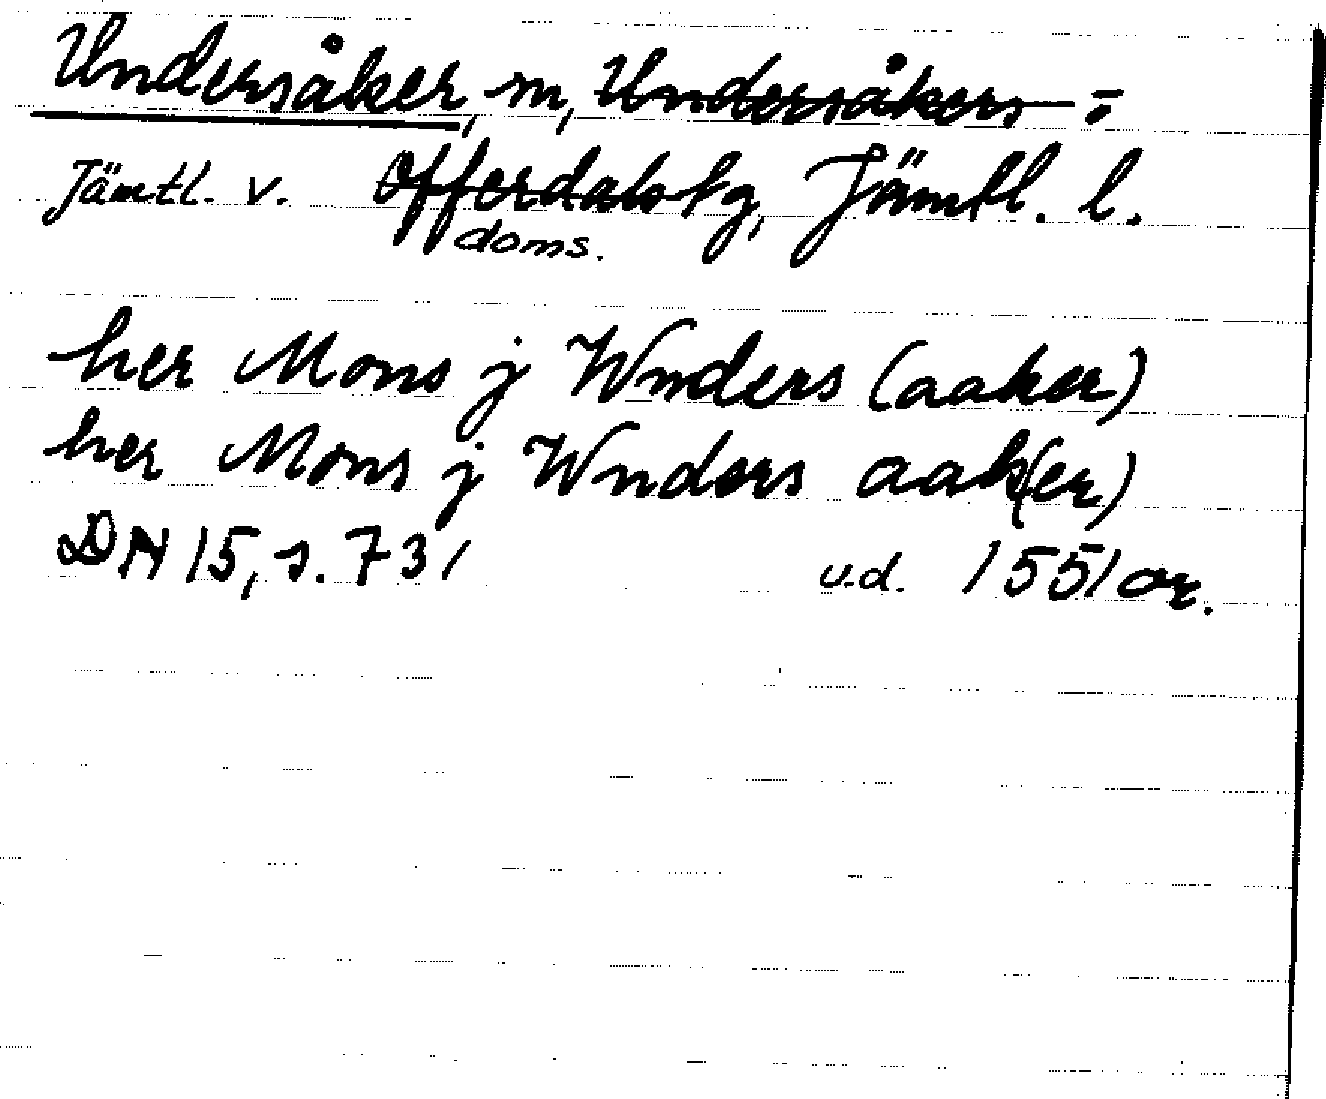 Undersåker, sn, Undersåkers-
Jämtl. v. Offerdals tg, Jämtl. l.
doms.
her Mons j Wnders (aaker)
her Mons j Wnders aak(er)
DN 15, s. 731 u.d. 1551 or.